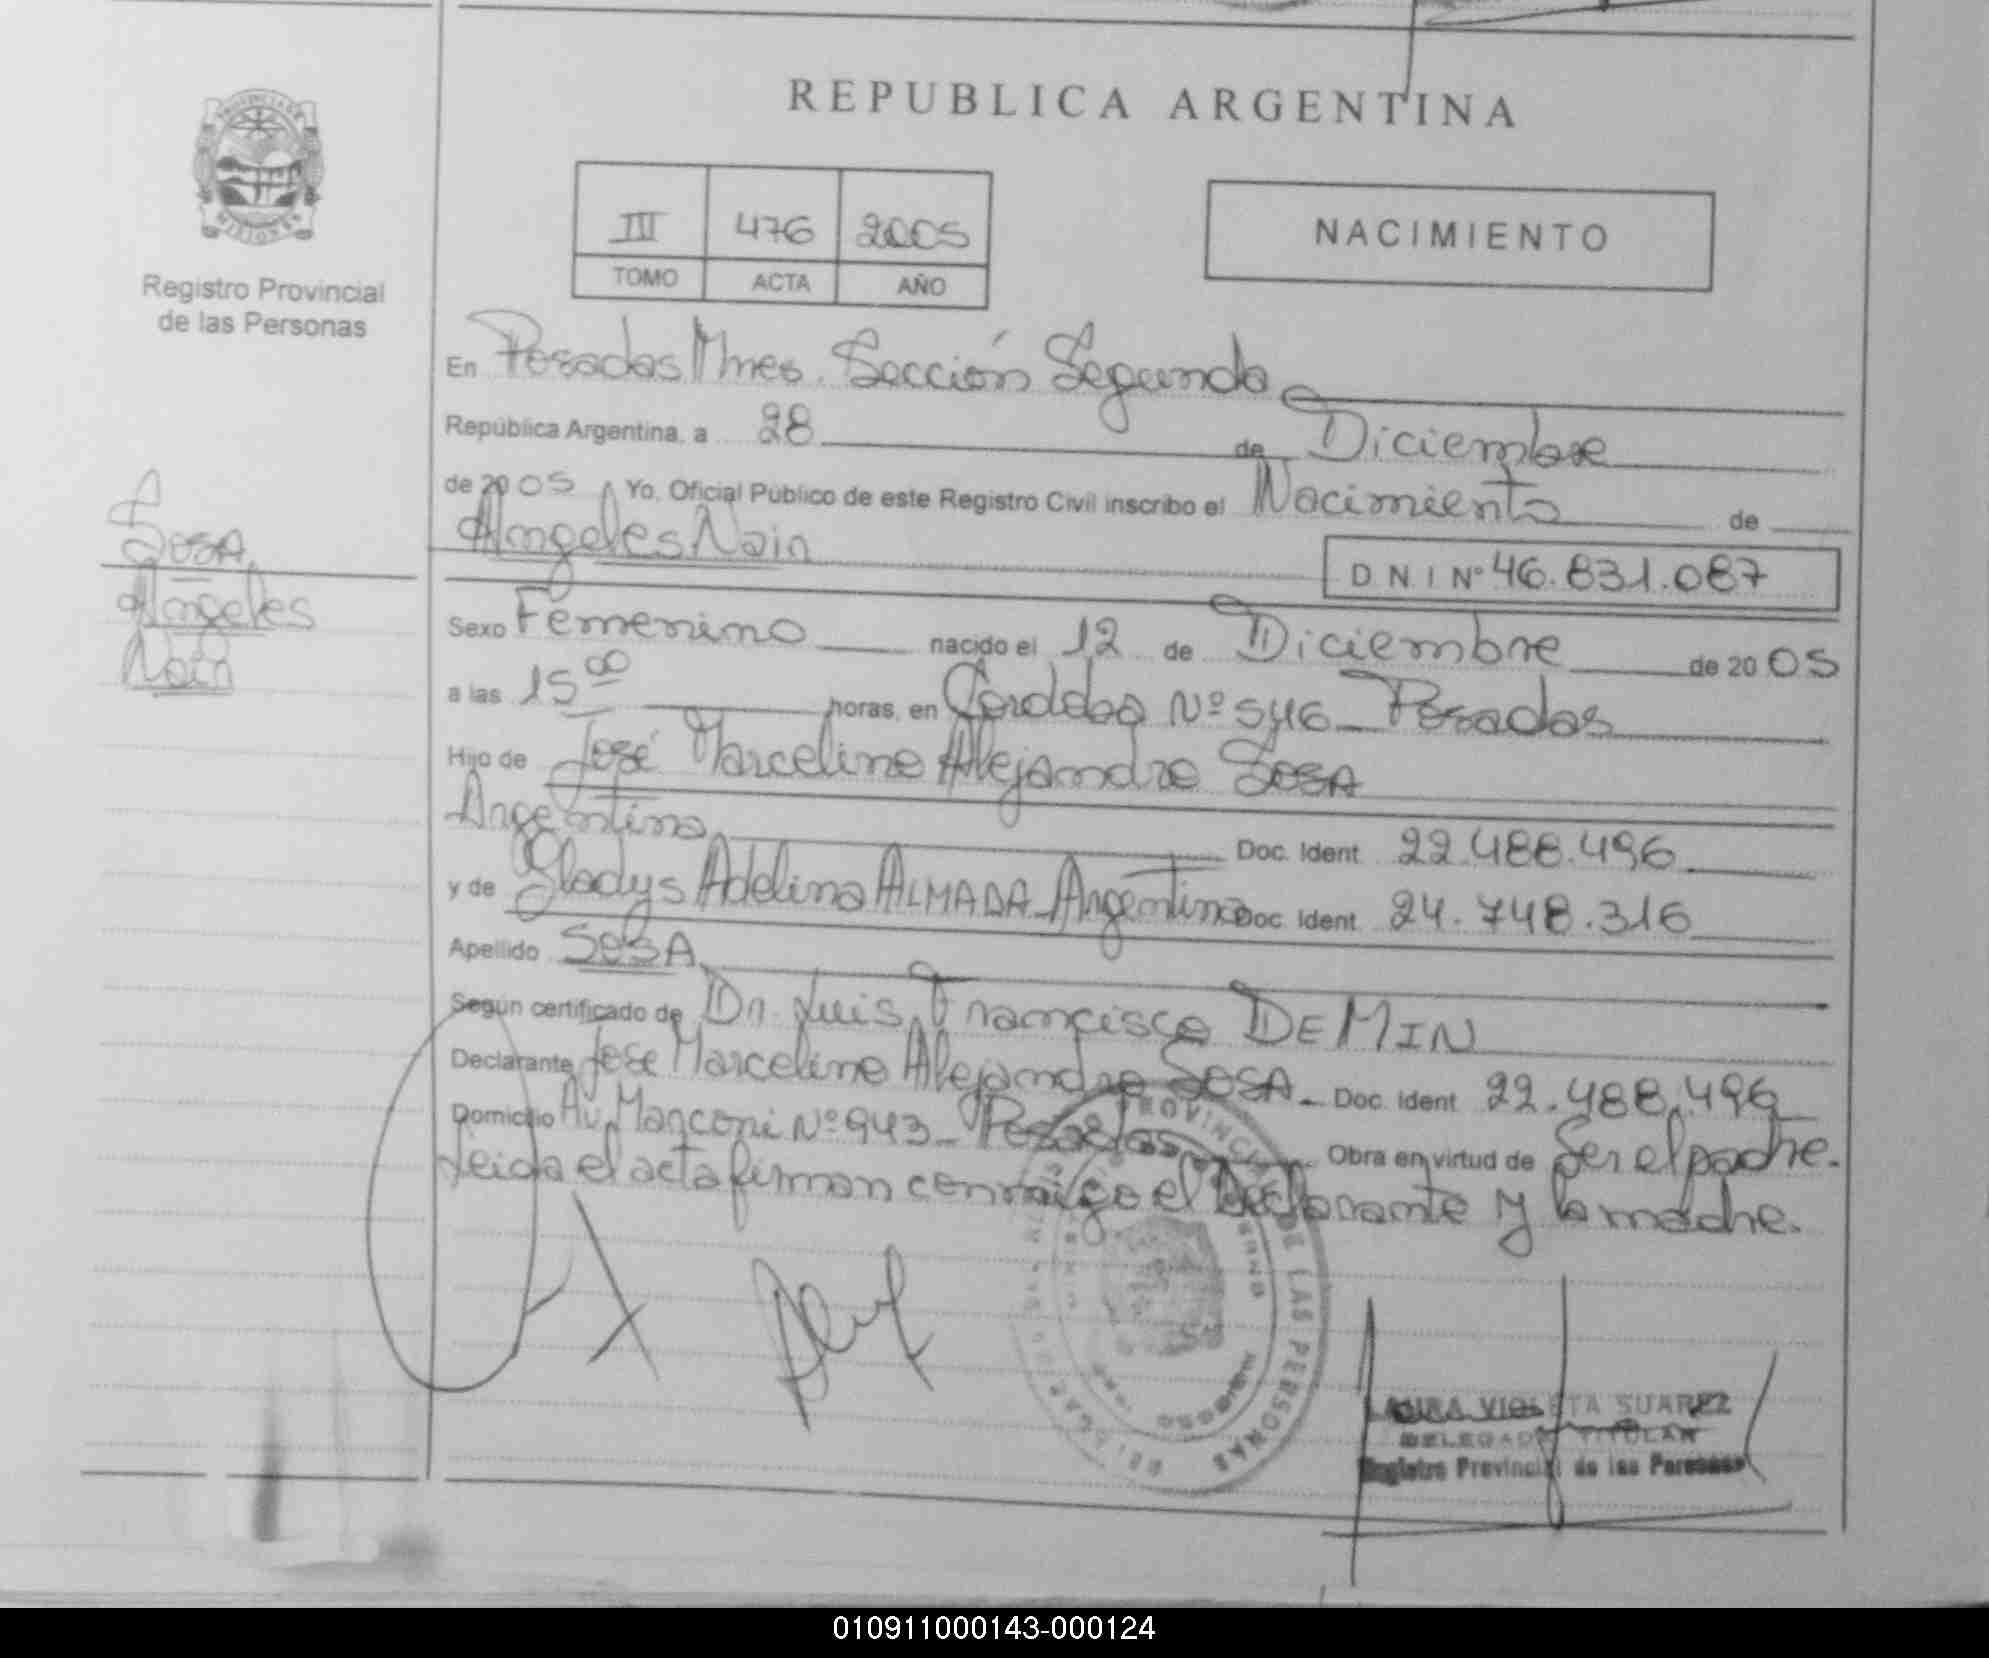 REPUBLICA ARGENTINA
PROVINCIA DE
MISIONES
Registro Provincial
de las Personas
III 476 2005
TOMO ACTA AÑO
NACIMIENTO
En Posadas Mnes. Sección Segunda
República Argentina, a 28 de Diciembre
de 2005 Yo, Oficial Público de este Registro Civil inscribo el Nacimiento de
Angeles Nain
D.N.I Nº 46.831.087
SOSA
Angeles
Nain
Sexo Femenino nacido el 12 de Diciembre de 2005
a las 15 00 horas, en Córdoba Nº 546 Posadas
Hijo de José Marcelino Alejandro SOSA
Argentina Doc. Ident. 22.488.496
y de Gladys Adelina ALMADA Argentina Doc. Ident. 24.748.316
Apellido SOSA
Según certificado de Dr. Luis Francisco DEMIN
Declarante José Marcelino Alejandro SOSA Doc. Ident. 22.488.496
Domicilio Av. Marconi Nº 943 Posadas Obra en virtud de Ser el padre.
Leida el acta firman conmigo el Declarante y la madre.
PROVINCIAL DE LAS PERSONAS
LAURA VIOLETA SUAREZ
DELEGADA TITULAR
Registro Provincial de las Personas
010911000143-000124